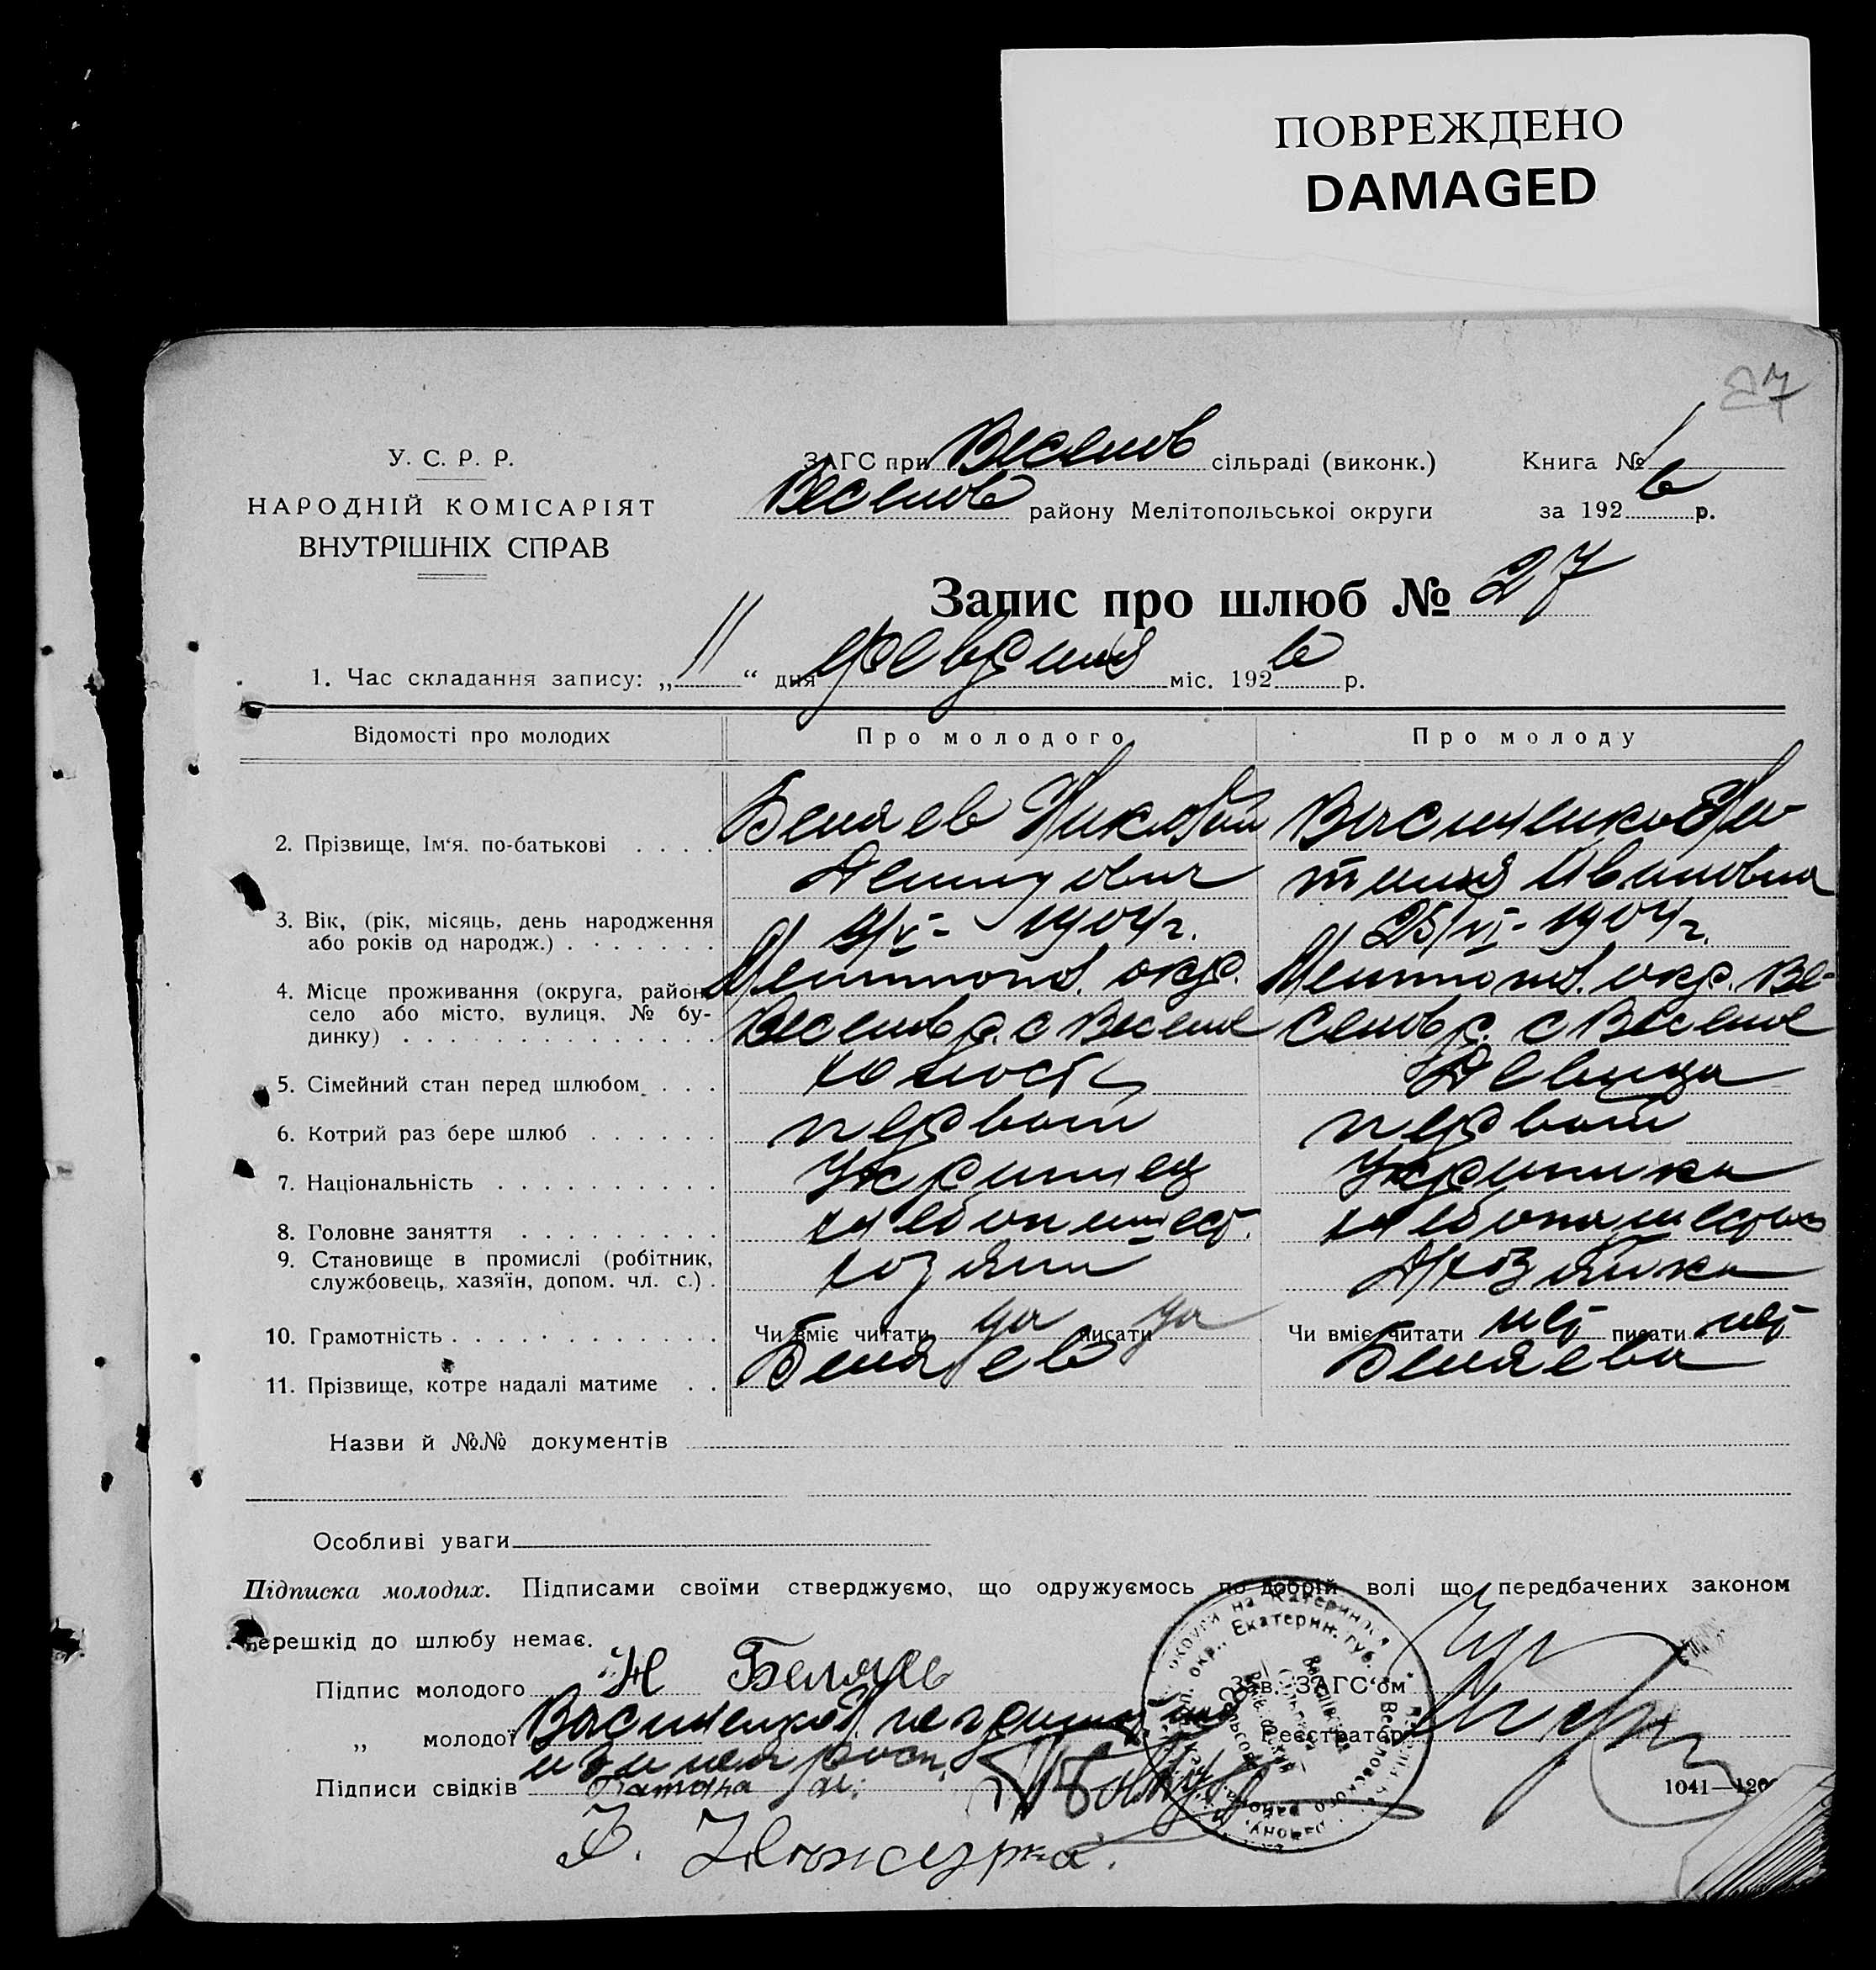 ПОВРЕЖДЕНО
DAMAGED
27
У. С. Р. Р.
НАРОДНІЙ КОМІСАРІЯТ
ВНУТРІШНІХ СПРАВ
ЗАГС при Веселов сільраді (виконк.)
Веселов району Мелітопольської округи
Книга № 1
за 1926 р.
Запис про шлюб № 27
1. Час складання запису: „11“ дня февраля міс. 1926 р.
Відомості про молодих Про молодого Про молоду
2. Прізвище, Ім‘я, по-батькові . . . . Беляев Николай Васильченко
Демидович Ивановна
3. Вік, (рік, місяць, день народження
або років од народж.) . . . . . . . /V- 1904 г. 25/VI- 1904 г.
4. Місце проживання (округа, район, Мелитопол. окр. Мелитопол. окр. Ве-
село або місто, вулиця, № бу- Веселов р. с Веселое селов р. с Веселое
динку) . . . . . . . . . . . . . .
5. Сімейний стан перед шлюбом . . . холост Девица
6. Котрий раз бере шлюб . . . . . . первый первый
7. Національність . . . . . . . . . . Украинец Украинка
8. Головне заняття . . . . . . . . . хлебопашест. хлебопашество
9. Становище в промислі (робітник,
службовець, хазяїн, допом. чл. с.) . хозяин Хозяйка
10. Грамотність . . . . . . . . . . . . Чи вміє читати да писати да Чи вміє читати нет писати нет
11. Прізвище, котре надалі матиме . . Беляев Беляева
Назви й №№ документів
Особливі уваги
Підписка молодих. Підписами своїми стверджуємо, що одружуємось по добрій волі що передбачених законом
перешкід до шлюбу немає.
Підпис молодого Н Беляев
Зав. ЗАГС‘ом
„ молодої неграмотна
Реєстратор
за нея росп.
Підписи свідків
1041—120